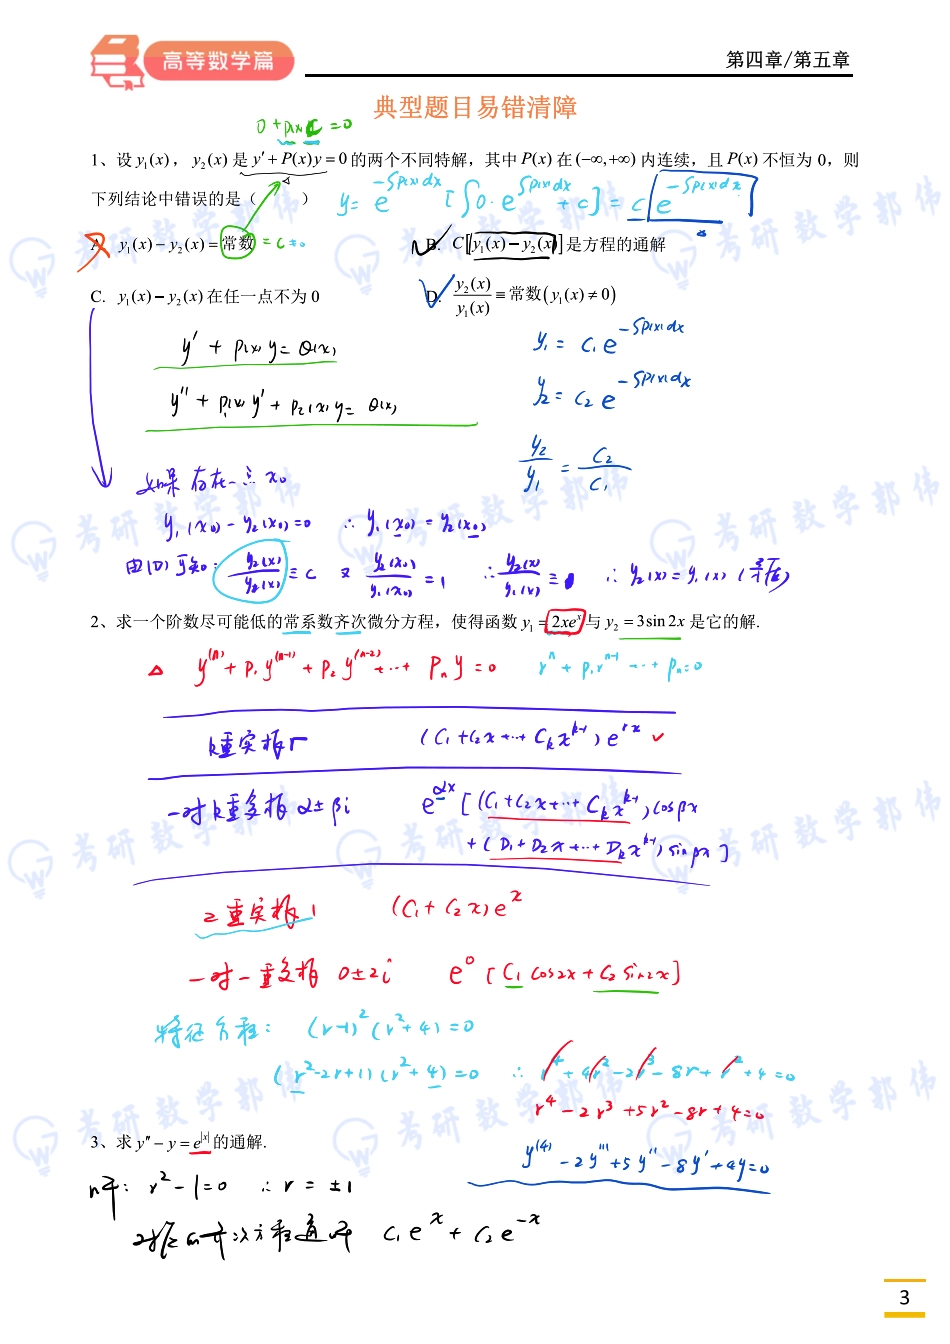 高等数学篇
第四章/第五章
典型题目易错清障
0+p(x)C=0
1、设 y₁(x)，y₂(x) 是 y′+P(x)y=0 的两个不同特解，其中 P(x) 在 (−∞,+∞) 内连续，且 P(x) 不恒为 0，则
下列结论中错误的是（ ）
y= e^{-∫p(x)dx} [∫0·e^{∫p(x)dx} +c] = c e^{-∫p(x)dx}
A. y₁(x)−y₂(x)=常数 =C≠0
B. C[y₁(x)−y₂(x)]是方程的通解
C. y₁(x)−y₂(x)在任一点不为 0
D. y₂(x)/y₁(x)≡常数(y₁(x)≠0)
y′+p(x)y=Q(x)
y₁= C₁e^{-∫p(x)dx}
y″+p₁(x)y′+p₂(x)y=Q(x)
y₂= C₂e^{-∫p(x)dx}
y₂/y₁ = C₂/C₁
如果存在一点 x₀
y₁(x₀)-y₂(x₀)=0 ∴ y₁(x₀)=y₂(x₀)
由(D)可知: y₂(x)/y₁(x)≡C 又 y₂(x₀)/y₁(x₀)=1 ∴ y₂(x)/y₁(x)≡1 ∴ y₂(x)=y₁(x) (矛盾)
2、求一个阶数尽可能低的常系数齐次微分方程，使得函数 y₁=2xeˣ 与 y₂=3sin2x 是它的解.
y^{(n)}+p₁y^{(n-1)}+p₂y^{(n-2)}+…+pₙy=0 rⁿ+p₁r^{n-1}+…+pₙ=0
k重实根r (C₁+C₂x+…+C_k x^{k-1})e^{rx}
一对k重复根 α±βi e^{αx}[(C₁+C₂x+…+C_k x^{k-1})cosβx
+(D₁+D₂x+…+D_k x^{k-1})sinβx]
2重实根1 (C₁+C₂x)eˣ
一对一重复根 0±2i e⁰[C₁cos2x+C₂sin2x]
特征方程: (r-1)²(r²+4)=0
(r²-2r+1)(r²+4)=0 ∴ r⁴+4r²-2r³-8r+r²+4=0
r⁴-2r³+5r²-8r+4=0
3、求 y″−y=e^{|x|} 的通解.
y⁽⁴⁾-2y‴+5y″-8y′+4y=0
解: r²-1=0 ∴ r=±1
齐次方程通解 C₁eˣ+C₂e^{-x}
3
考研数学郭伟
考研数学郭伟
考研数学郭伟
考研数学郭伟
考研数学郭伟
考研数学郭伟
考研数学郭伟
考研数学郭伟
考研数学郭伟
考研数学郭伟
考研数学郭伟
考研数学郭伟